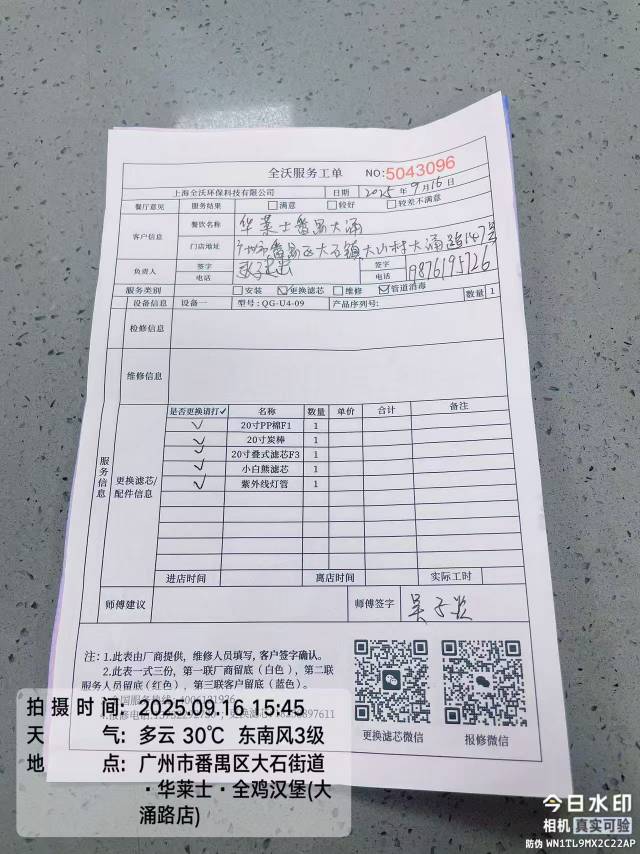 全沃服务工单
NO:5043096
上海全沃环保科技有限公司 日期 2025年9月16日
餐厅意见 服务结果 满意 较好 较差不满意
客户信息 餐饮名称 华莱士番禺大涌
门店地址 广州市番禺区大石镇大山村大涌路147号
负责人 签字 电话 签字 电话 19876195726
服务类别 安装 更换滤芯 维修 管道消毒
设备信息 设备一 型号:QG-U4-09 产品序列号: 数量 1
检修信息
维修信息
服务信息
更换滤芯/配件信息
是否更换请打✓ 名称 数量 单价 合计 备注
✓ 20寸PP棉F1 1
✓ 20寸炭棒 1
✓ 20寸叠式滤芯F3 1
✓ 小白熊滤芯 1
✓ 紫外线灯管 1
进店时间 离店时间 实际工时
师傅建议 师傅签字
注:1.此表由厂商提供,维修人员填写,客户签字确认。
2.此表一式三份,第一联厂商留底(白色)、第二联
服务人员留底(红色)、第三联客户留底(蓝色)。
更换滤芯微信 报修微信
拍摄时间: 2025.09.16 15:45
天气: 多云 30℃ 东南风3级
地点: 广州市番禺区大石街道
·华莱士·全鸡汉堡(大
涌路店)
今日水印
相机 真实可验
防伪 WN1TL9MX2C22AP